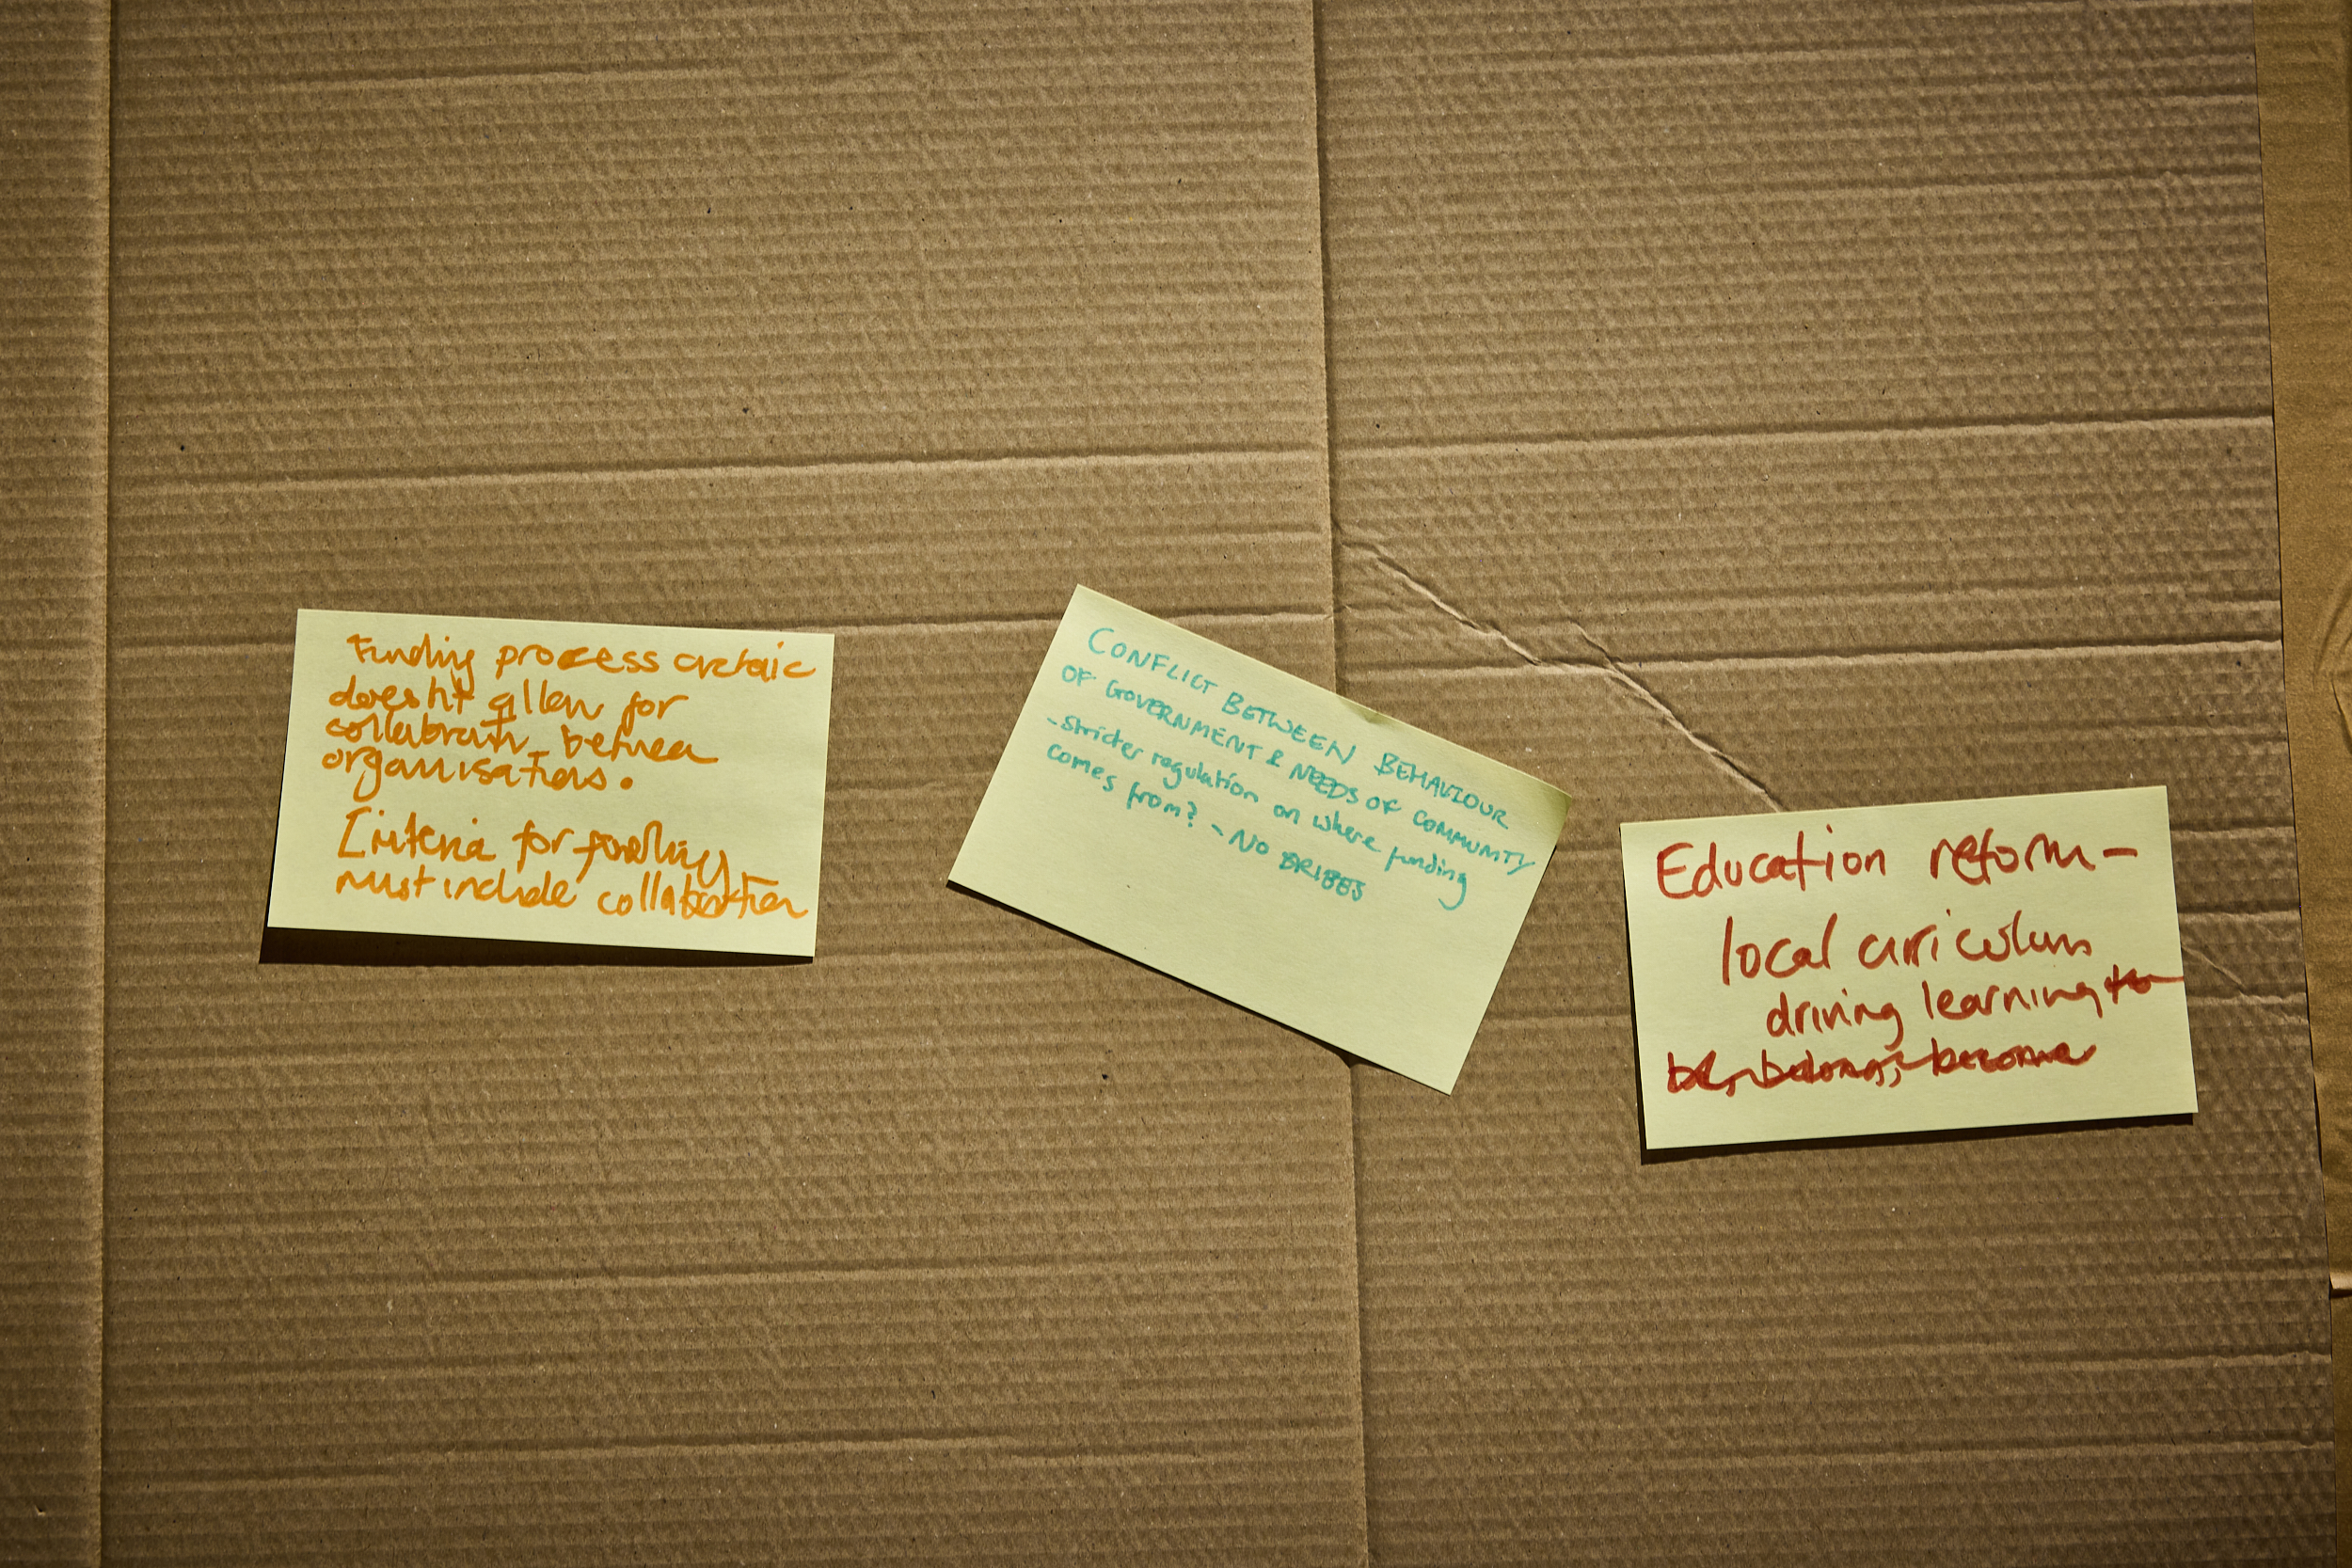 Funding process archaic
doesn't allow for
collabration between
organisations.
Criteria for funding
must include collabration
CONFLICT BETWEEN BEHAVIOUR
OF GOVERNMENT & NEEDS OF COMMUNITY
- stricter regulation on where funding
comes from? - NO BRIBES
Education reform -
local curriculum
driving learning to
be, belong, become